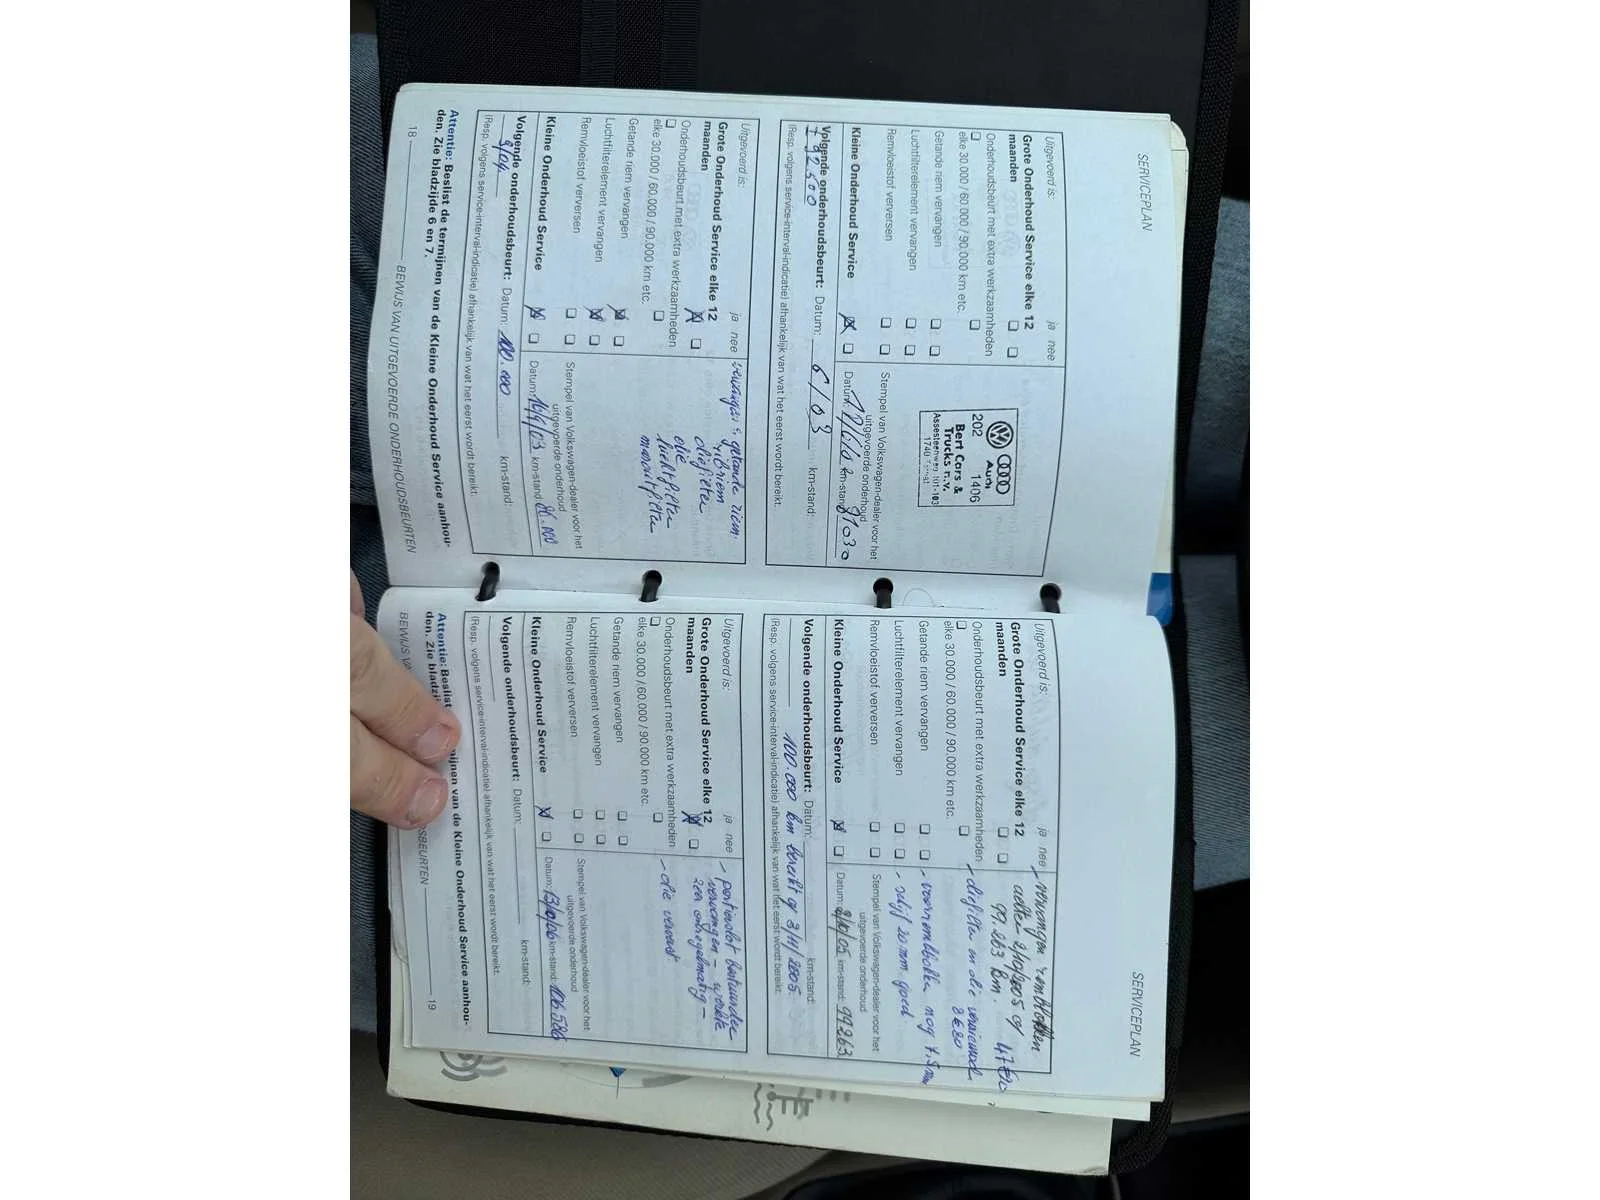 SERVICEPLAN
Uitgevoerd is:
ja nee
Grote Onderhoud Service elke 12
maanden
Onderhoudsbeurt met extra werkzaamheden
elke 30.000 / 60.000 / 90.000 km etc.
Getande riem vervangen
Luchtfilterelement vervangen
Remvloeistof verversen
Kleine Onderhoud Service
Audi
202 1406
Bert Cars &
Trucks n.v.
Assesteenweg 101-103
1740
Stempel van Volkswagen-dealer voor het
uitgevoerde onderhoud
Datum: km-stand: 91030
Volgende onderhoudsbeurt: Datum: 6/03 km-stand:
92500
(Resp. volgens service-interval-indicatie) afhankelijk van wat het eerst wordt bereikt.
Uitgevoerd is:
ja nee
Grote Onderhoud Service elke 12
maanden
Onderhoudsbeurt met extra werkzaamheden
elke 30.000 / 60.000 / 90.000 km etc.
Getande riem vervangen
Luchtfilterelement vervangen
Remvloeistof verversen
Kleine Onderhoud Service
getande riem.
oliefilter
olie
luchtfilter
Stempel van Volkswagen-dealer voor het
uitgevoerde onderhoud
Datum: km-stand:
Volgende onderhoudsbeurt: Datum: 100.000 km-stand:
(Resp. volgens service-interval-indicatie) afhankelijk van wat het eerst wordt bereikt.
Attentie: Beslist de termijnen van de Kleine Onderhoud Service aanhou-
den. Zie bladzijde 6 en 7.
18 BEWIJS VAN UITGEVOERDE ONDERHOUDSBEURTEN
SERVICEPLAN
Uitgevoerd is:
ja nee
Grote Onderhoud Service elke 12
maanden
Onderhoudsbeurt met extra werkzaamheden
elke 30.000 / 60.000 / 90.000 km etc.
Getande riem vervangen
Luchtfilterelement vervangen
Remvloeistof verversen
Kleine Onderhoud Service
- vervangen remblokken
99263 km.
- oliefilter en olie
- schijf 20 mm goed
Stempel van Volkswagen-dealer voor het
uitgevoerde onderhoud
Datum: km-stand: 99263
Volgende onderhoudsbeurt: Datum: km-stand:
100.000 km bereikt op 3/11/2005.
(Resp. volgens service-interval-indicatie) afhankelijk van wat het eerst wordt bereikt.
Uitgevoerd is:
ja nee
Grote Onderhoud Service elke 12
maanden
Onderhoudsbeurt met extra werkzaamheden
elke 30.000 / 60.000 / 90.000 km etc.
Getande riem vervangen
Luchtfilterelement vervangen
Remvloeistof verversen
Kleine Onderhoud Service
- portierslot bestuurder
vervangen - werkte
zeer onregelmatig -
- olie ververst
Stempel van Volkswagen-dealer voor het
uitgevoerde onderhoud
Datum: km-stand: 106586
Volgende onderhoudsbeurt: Datum: km-stand:
(Resp. volgens service-interval-indicatie) afhankelijk van wat het eerst wordt bereikt.
Attentie: Beslist
mijnen van de Kleine Onderhoud Service aanhou-
den. Zie
19